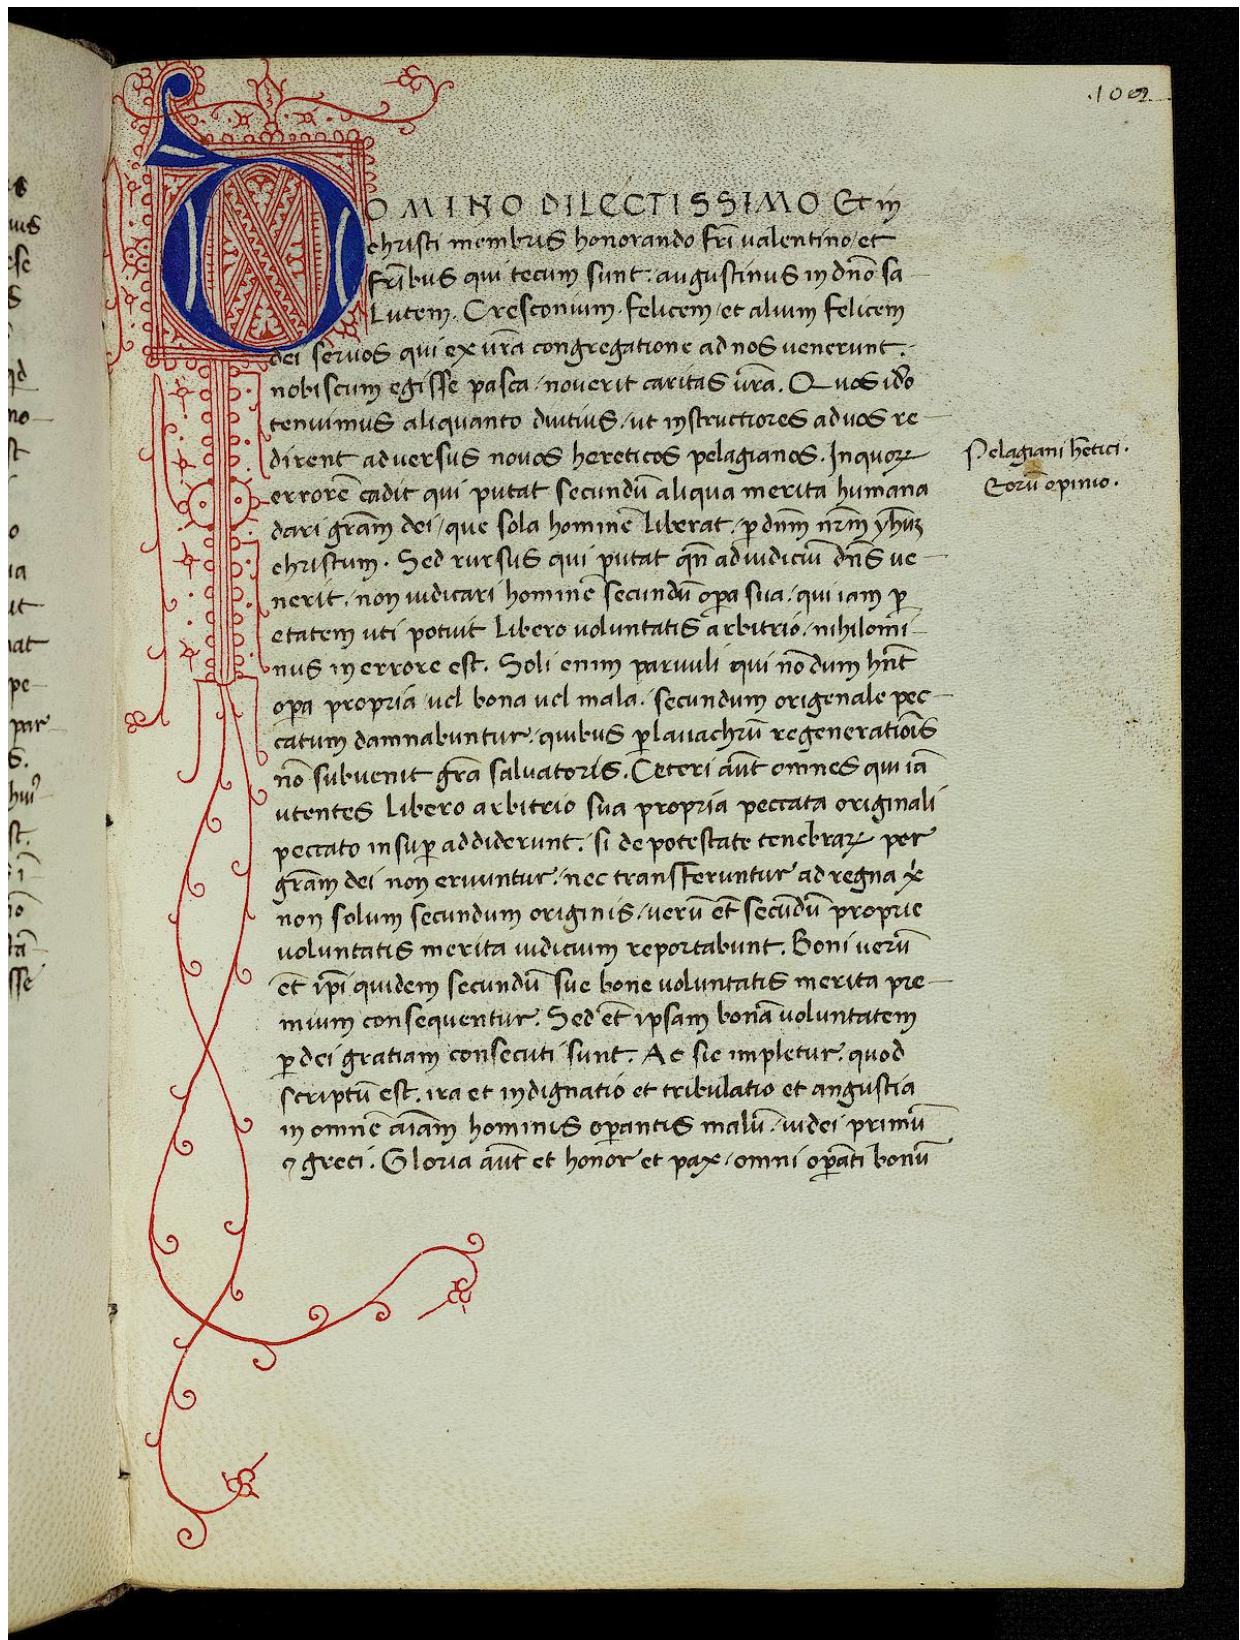 .102.
DOMINO DILECTISSIMO Et in
christi membris honorando fr̄i valentino/et
fr̄ibus qui tecum sunt. augustinus in dn̄o sa
Lutem. Cresconium. felicem/et alium felicem
dei seruos qui ex ur̄a congregatione ad nos uenerunt.
nobiscum egisse pasca/nouerit caritas ur̄a. Quos id̄o
tenuimus aliquanto diutius/ut instructiores ad uos re-
dirent aduersus nouos hereticos pelagianos. In quoꝝ
Pelagiani hētici.
errorē cadit qui putat secundū aliqua merita humana
Eorū opinio.
dari grām dei/que sola hominē liberat/ꝑ dnm̄ nrm̄ yhūꝫ
christum. Sed rursus qui putat qn̄ ad iudiciū dn̄s ue-
nerit/non iudicari hominē secundū oꝑa sua/qui iam ꝑ
etatem uti potuit Libero uoluntatis arbitrio/nihilomi-
nus in errore est. Soli enim paruuli qui nōdum hn̄t
oꝑa propria/uel bona uel mala/secundum origenale pec-
catum damnabuntur/quibus ꝑ lauachrū regeneratiōis
nō subuenit grā saluatoris. Ceteri aūt omnes qui iā
utentes Libero arbitrio sua propria peccata originali
peccato insuꝑ addiderunt/si de potestate tenebraꝝ per
grām dei non eruuntur/nec transferuntur ad regna x̄
non solum secundum originis/uerū et̄ secūdū proprie
uoluntatis merita iudicium reportabunt. Boni uerū
et̄ ip̄i quidem secundū sue bone uoluntatis merita pre-
mium consequentur. Sed et̄ ipsam bonā uoluntatem
ꝑ dei gratiam consecuti sunt. Ac sic impletur/quod
scriptū est. ira et indignatio et tribulatio et angustia
in omnē aīam hominis oꝑantis malū/iudei primū
⁊ greci. Gloria aūt et honor et pax/omni oꝑāti bonū